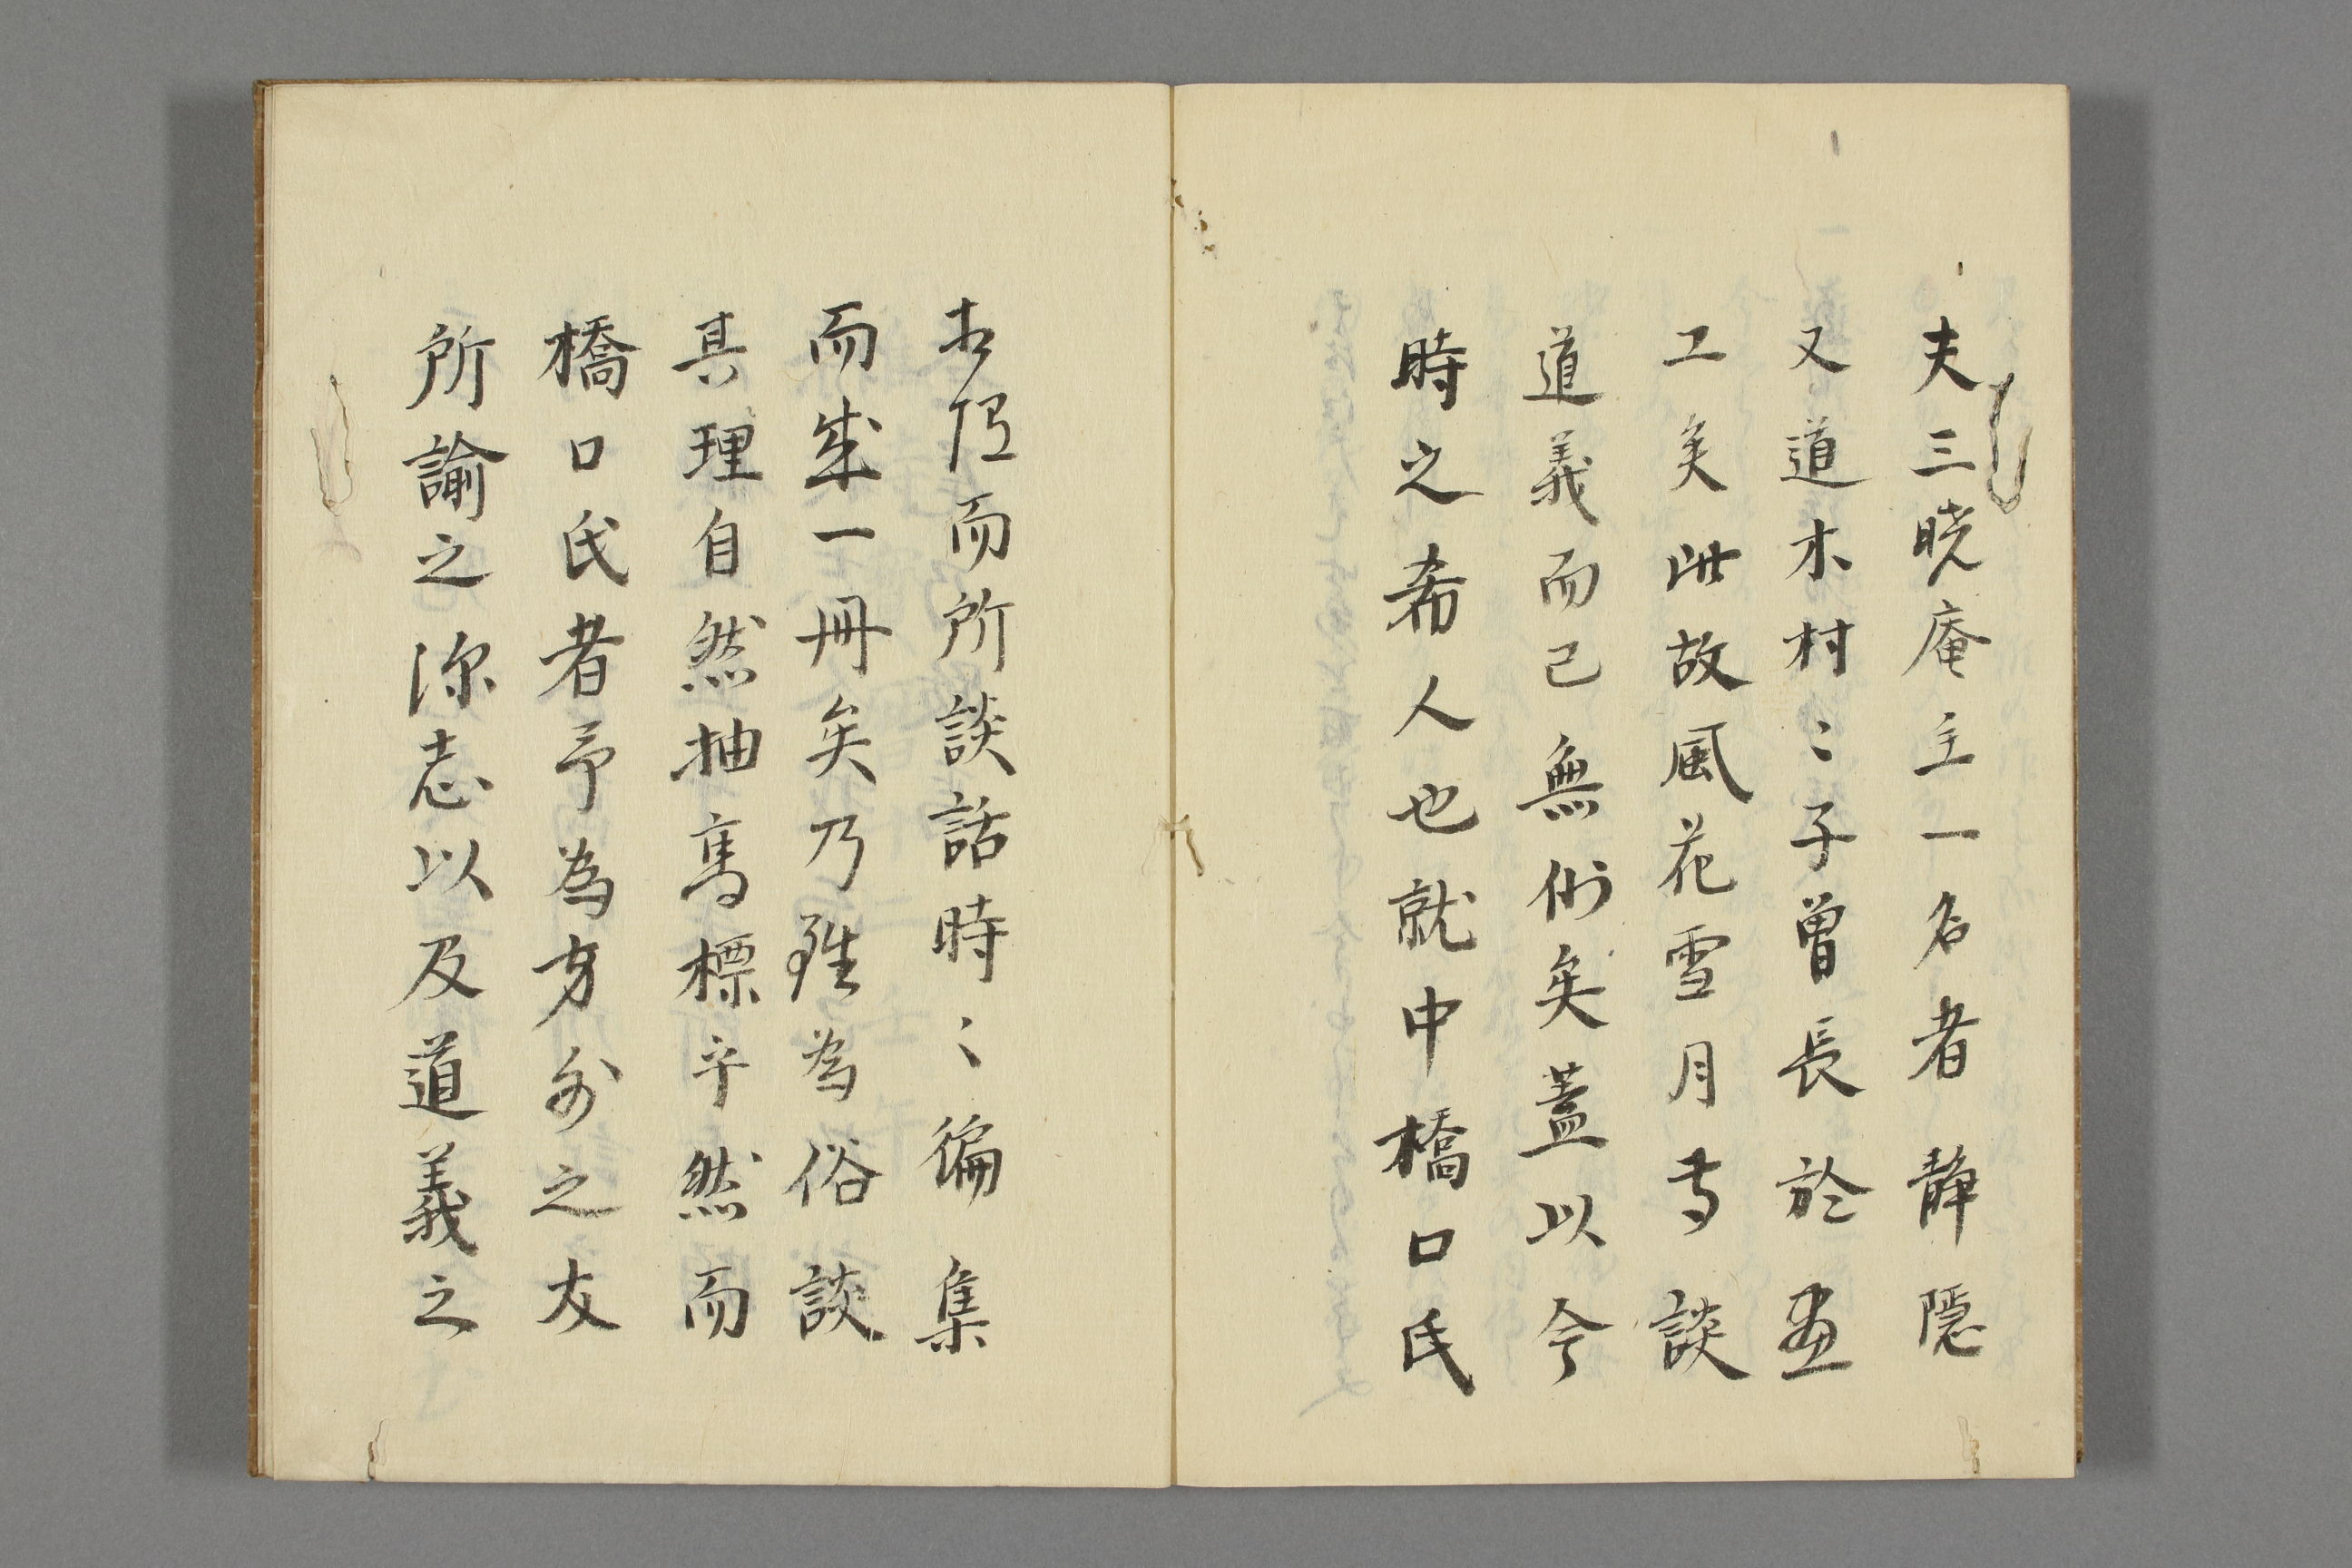 夫三暁庵主一名者静隠
又道木村〻子曽長於画
工矣此故風花雪月専談
道義而已無他矣蓋以今
時之希人也就中橋口氏
而所談話時〻徧集
而成一冊矣乃雖為俗談
其理自然抽高標乎然而
橋口氏者予為方外之友
所諭之深志以及道義之